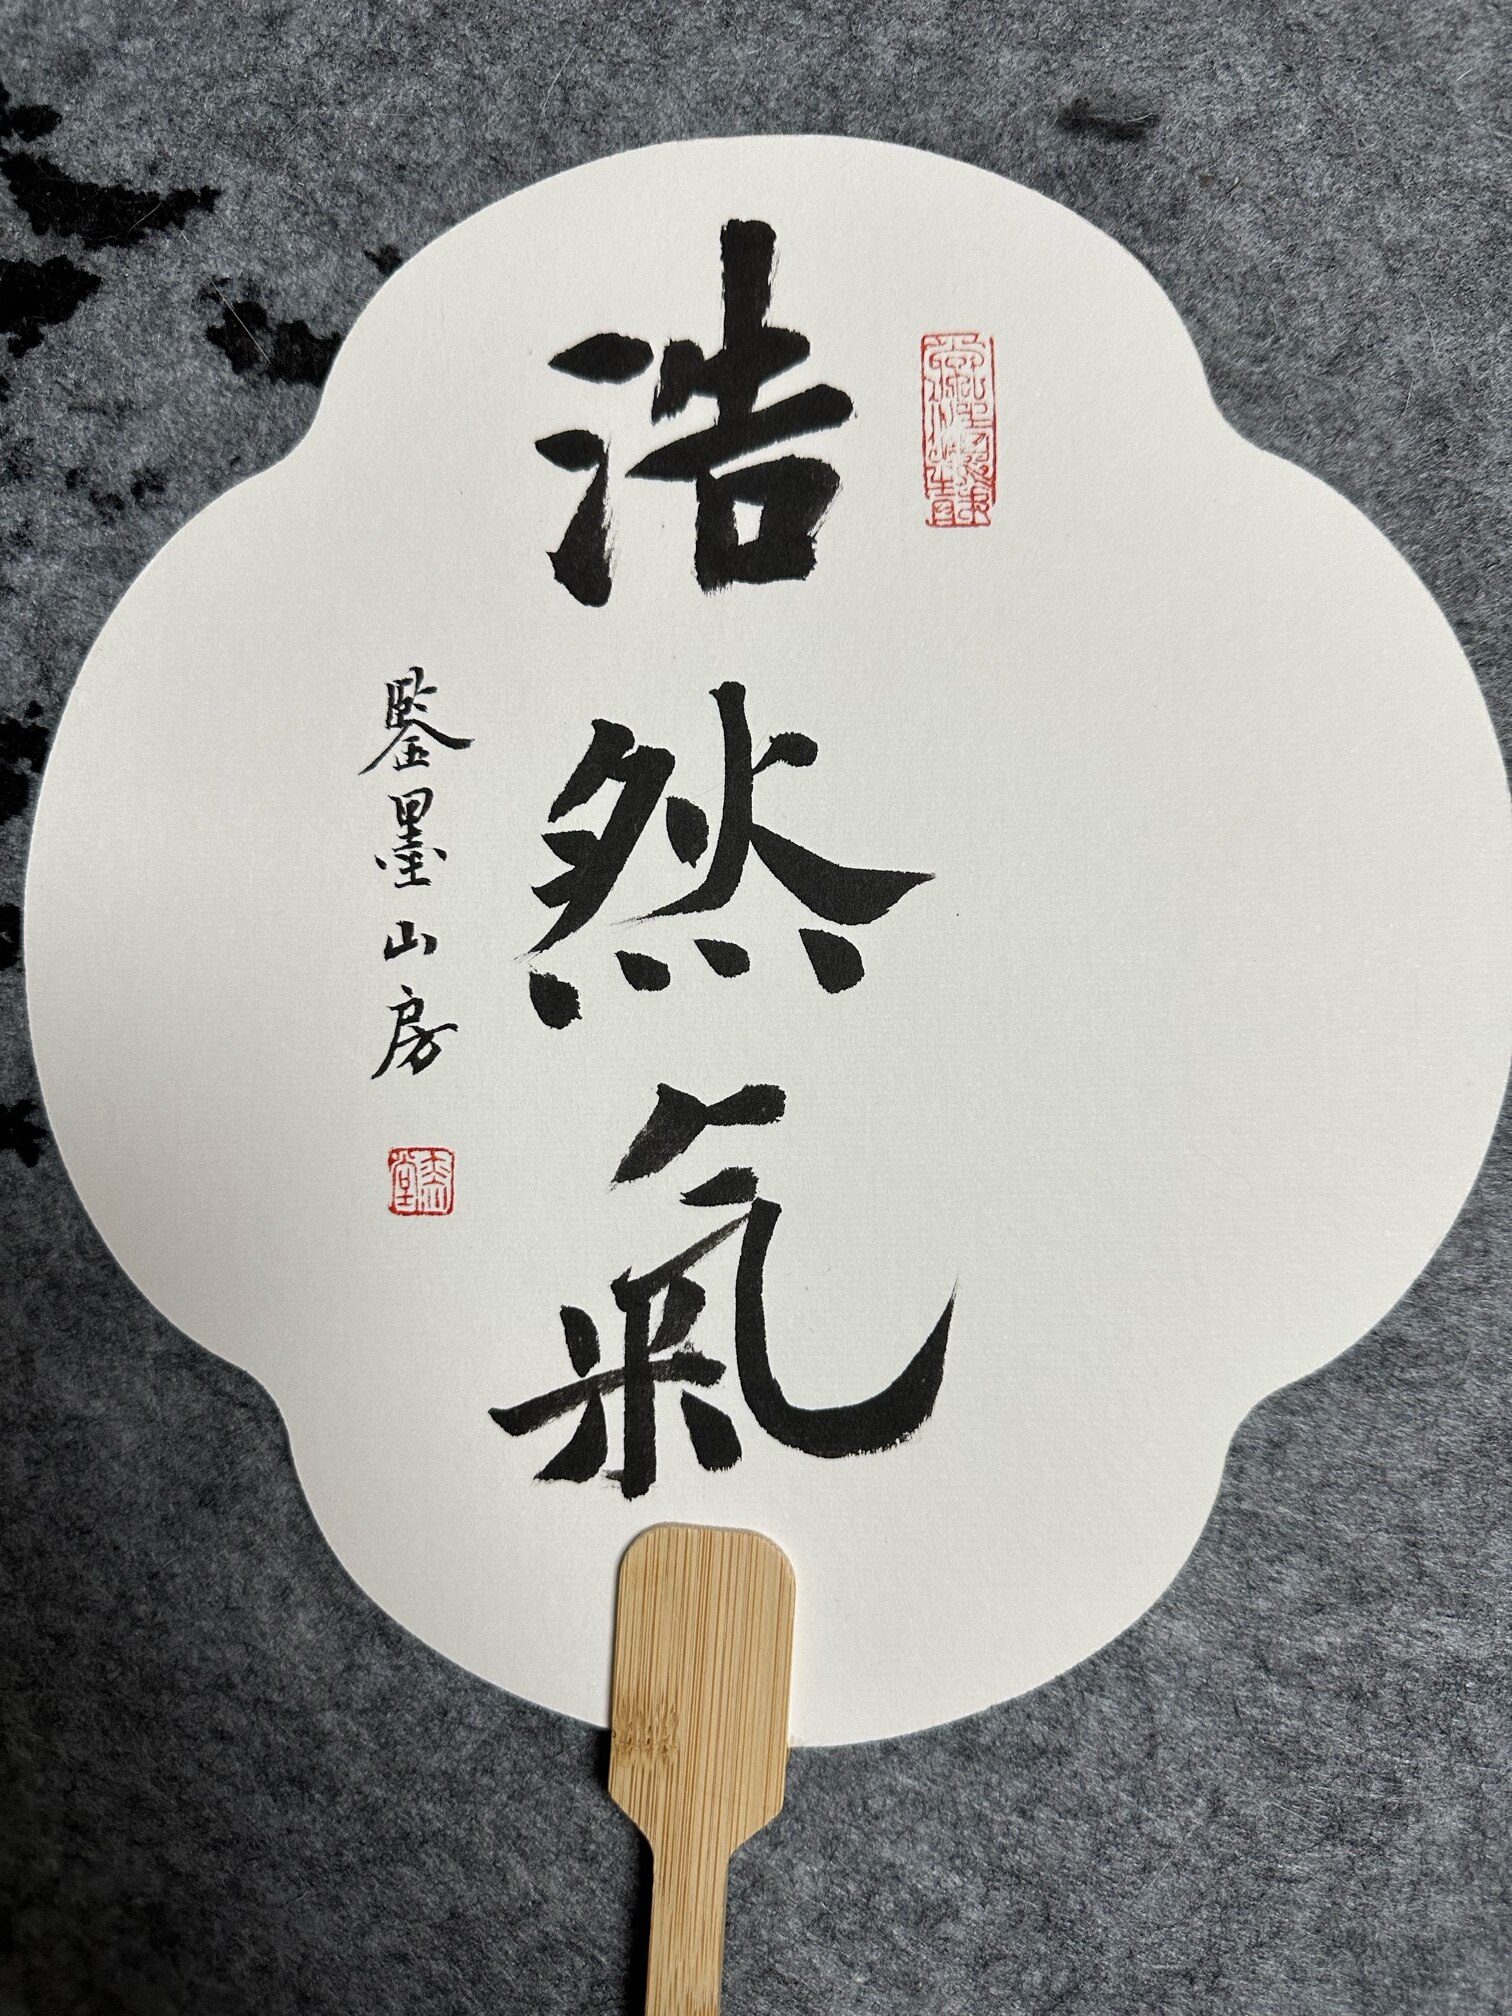 浩然氣
鋻墨山房